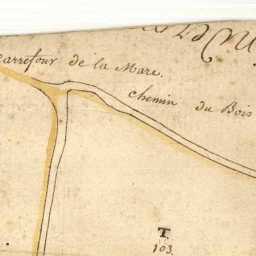 carrefour de la Mare.
chemin du Bois
T.
103.